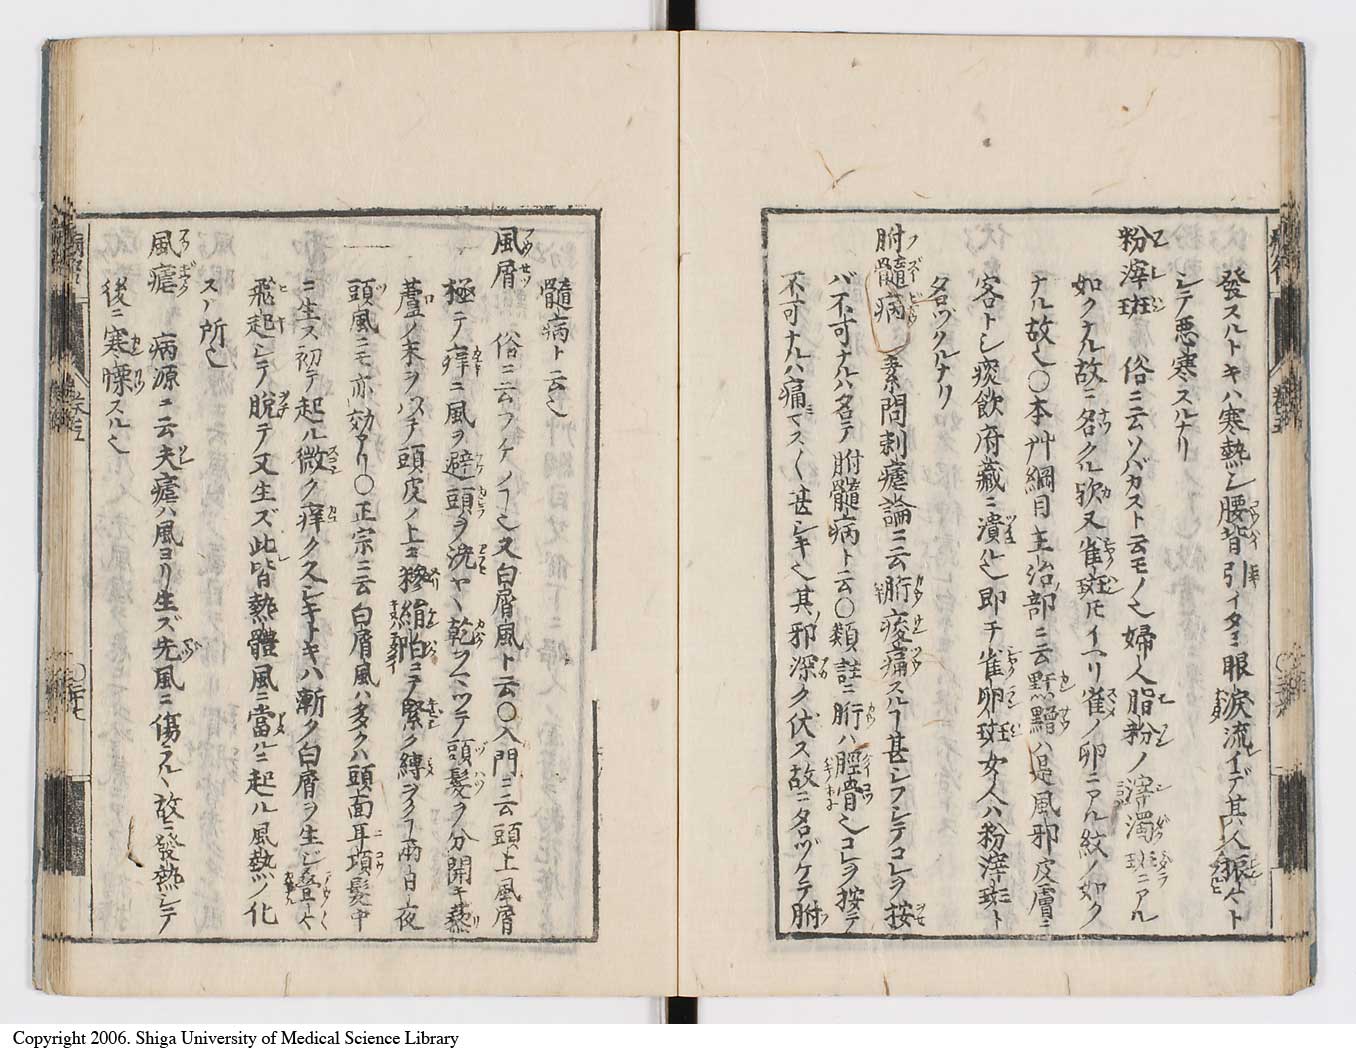 發スルトキハ寒熱シ腰背引イタミ眼淚流イデ其人振々ト
シテ悪寒スルナリ
粉滓斑 俗ニ云ソバカスト云モノ也婦人脂粉ノ滓濁斑ニアル
如クナル故ニ名クル欤又雀斑𪜈イヘリ雀ノ卵ニアル紋ノ如ク
ナル故也○本艸綱目主治部ニ云野䵟ハ是風邪皮膚ニ
客トシ痰飲府藏ニ漬也即チ雀卵斑女人ハ粉滓斑ト
名ヅクルナリ
胕髓病 素問刺瘧論ニ云胻痠痛スルヿ甚シフシテコレヲ按
バ不可ナルハ名テ胕髓病ト云○類註ニ胻ハ脛骨也コレヲ按テ
不可ナルハ痛マス〱甚シキ也其邪深ク伏ス故ニ名ヅケテ胕
髓病ト云也
風屑 俗ニ云フケノヿ也又白屑風ト云○入門ニ云頭上風屑
極テ痒ニ風ヲ避頭ヲ洗ヤヽ乾クマツテ頭髮ヲ分開キ藜
蘆ノ末ヲ頭皮ノ上ニ絹帕ニテ緊ク縛ヲクヿ兩日夜
頭風ニモ亦効アリ○正宗ニ云白屑風ハ多クハ頭面耳項髮中
ニ生ズ初テ起ル微ク痒クスシキトキハ漸ク白屑ヲ生ジ疊々
飛起シテ脫テ又生ズ此皆熱體風ニ當ルニ起ル風熱ノ化
スル所也
風瘧 病源ニ云夫瘧ハ風ヨリ生ズ先風ニ傷ラル故ニ發熱シテ
後ニ寒慄スル也
Copyright 2006. Shiga University of Medical Science Library